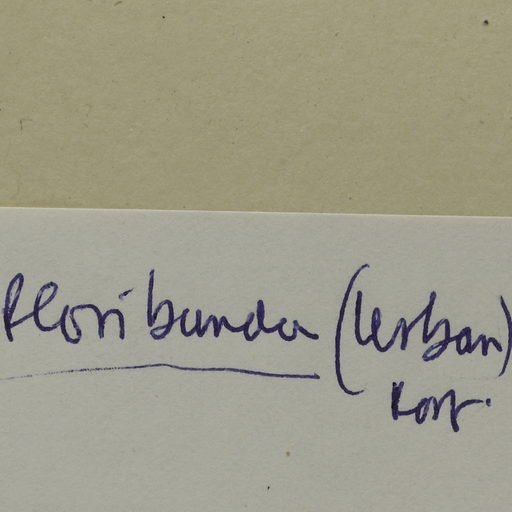 floribunda (Urban)
Kost.